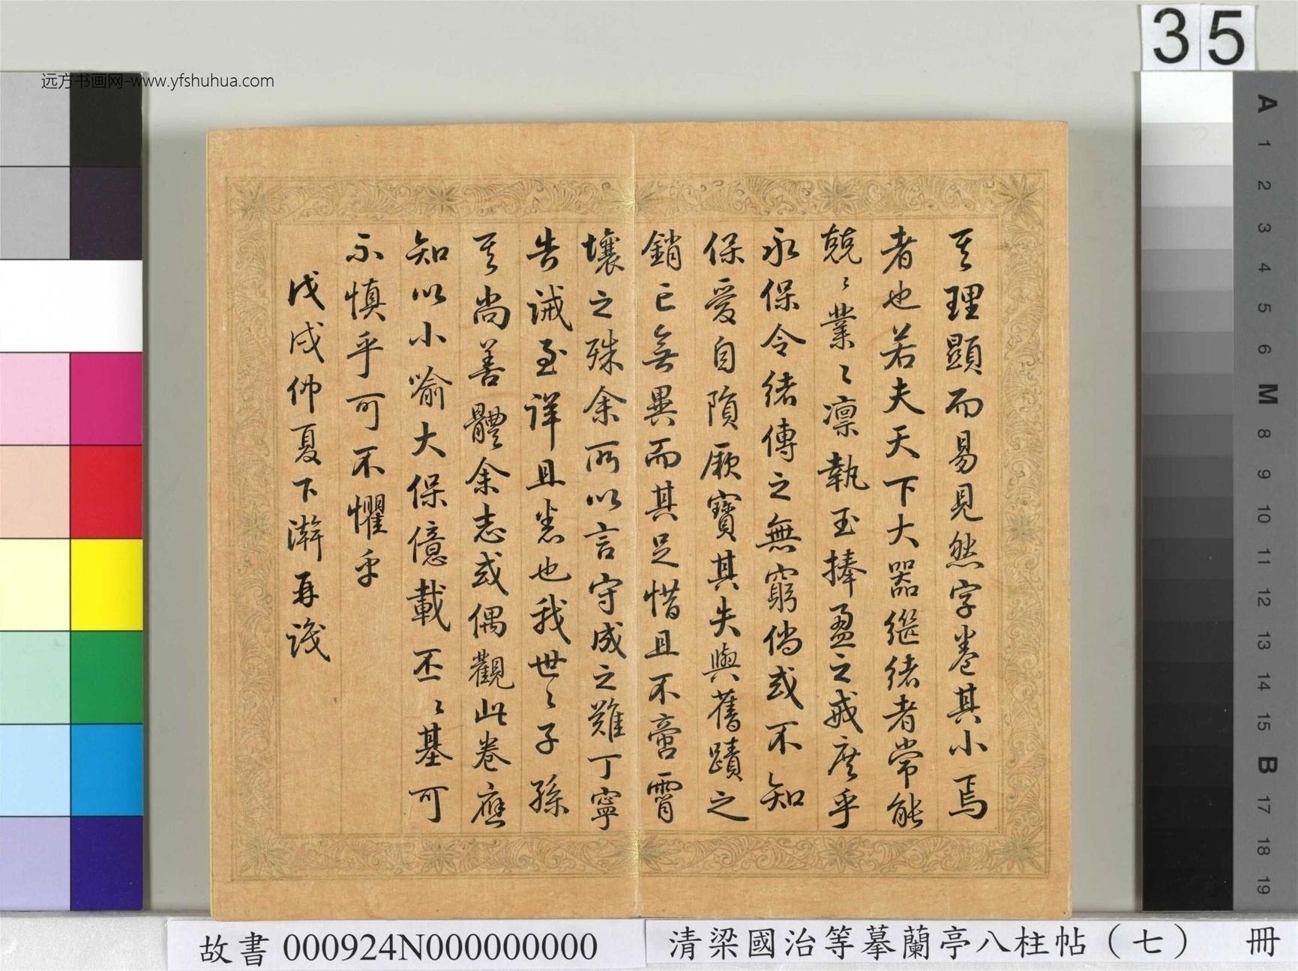 远方书画网-www.yfshuhua.com
35
其理顯而易見然字卷其小焉
者也若夫天下大器繼緒者常能
兢〻業〻凛執玉捧盈之戒庶乎
永保令緒傳之無窮倘或不知
保愛自隕厥寶其失與舊蹟之
銷亡無異而其足惜且不啻霄
壤之殊余所以言守成之難丁寧
告誡至詳且悉也我世〻子孫
其尚善體余志或偶觀此卷應
知以小喻大保億載丕〻基可
不慎乎可不懼乎
戊戌仲夏下澣再識
A 1 2 3 4 5 6 M 8 9 10 11 12 13 14 15 B 17 18 19
故書 000924N000000000
清梁國治等摹蘭亭八柱帖（七） 冊